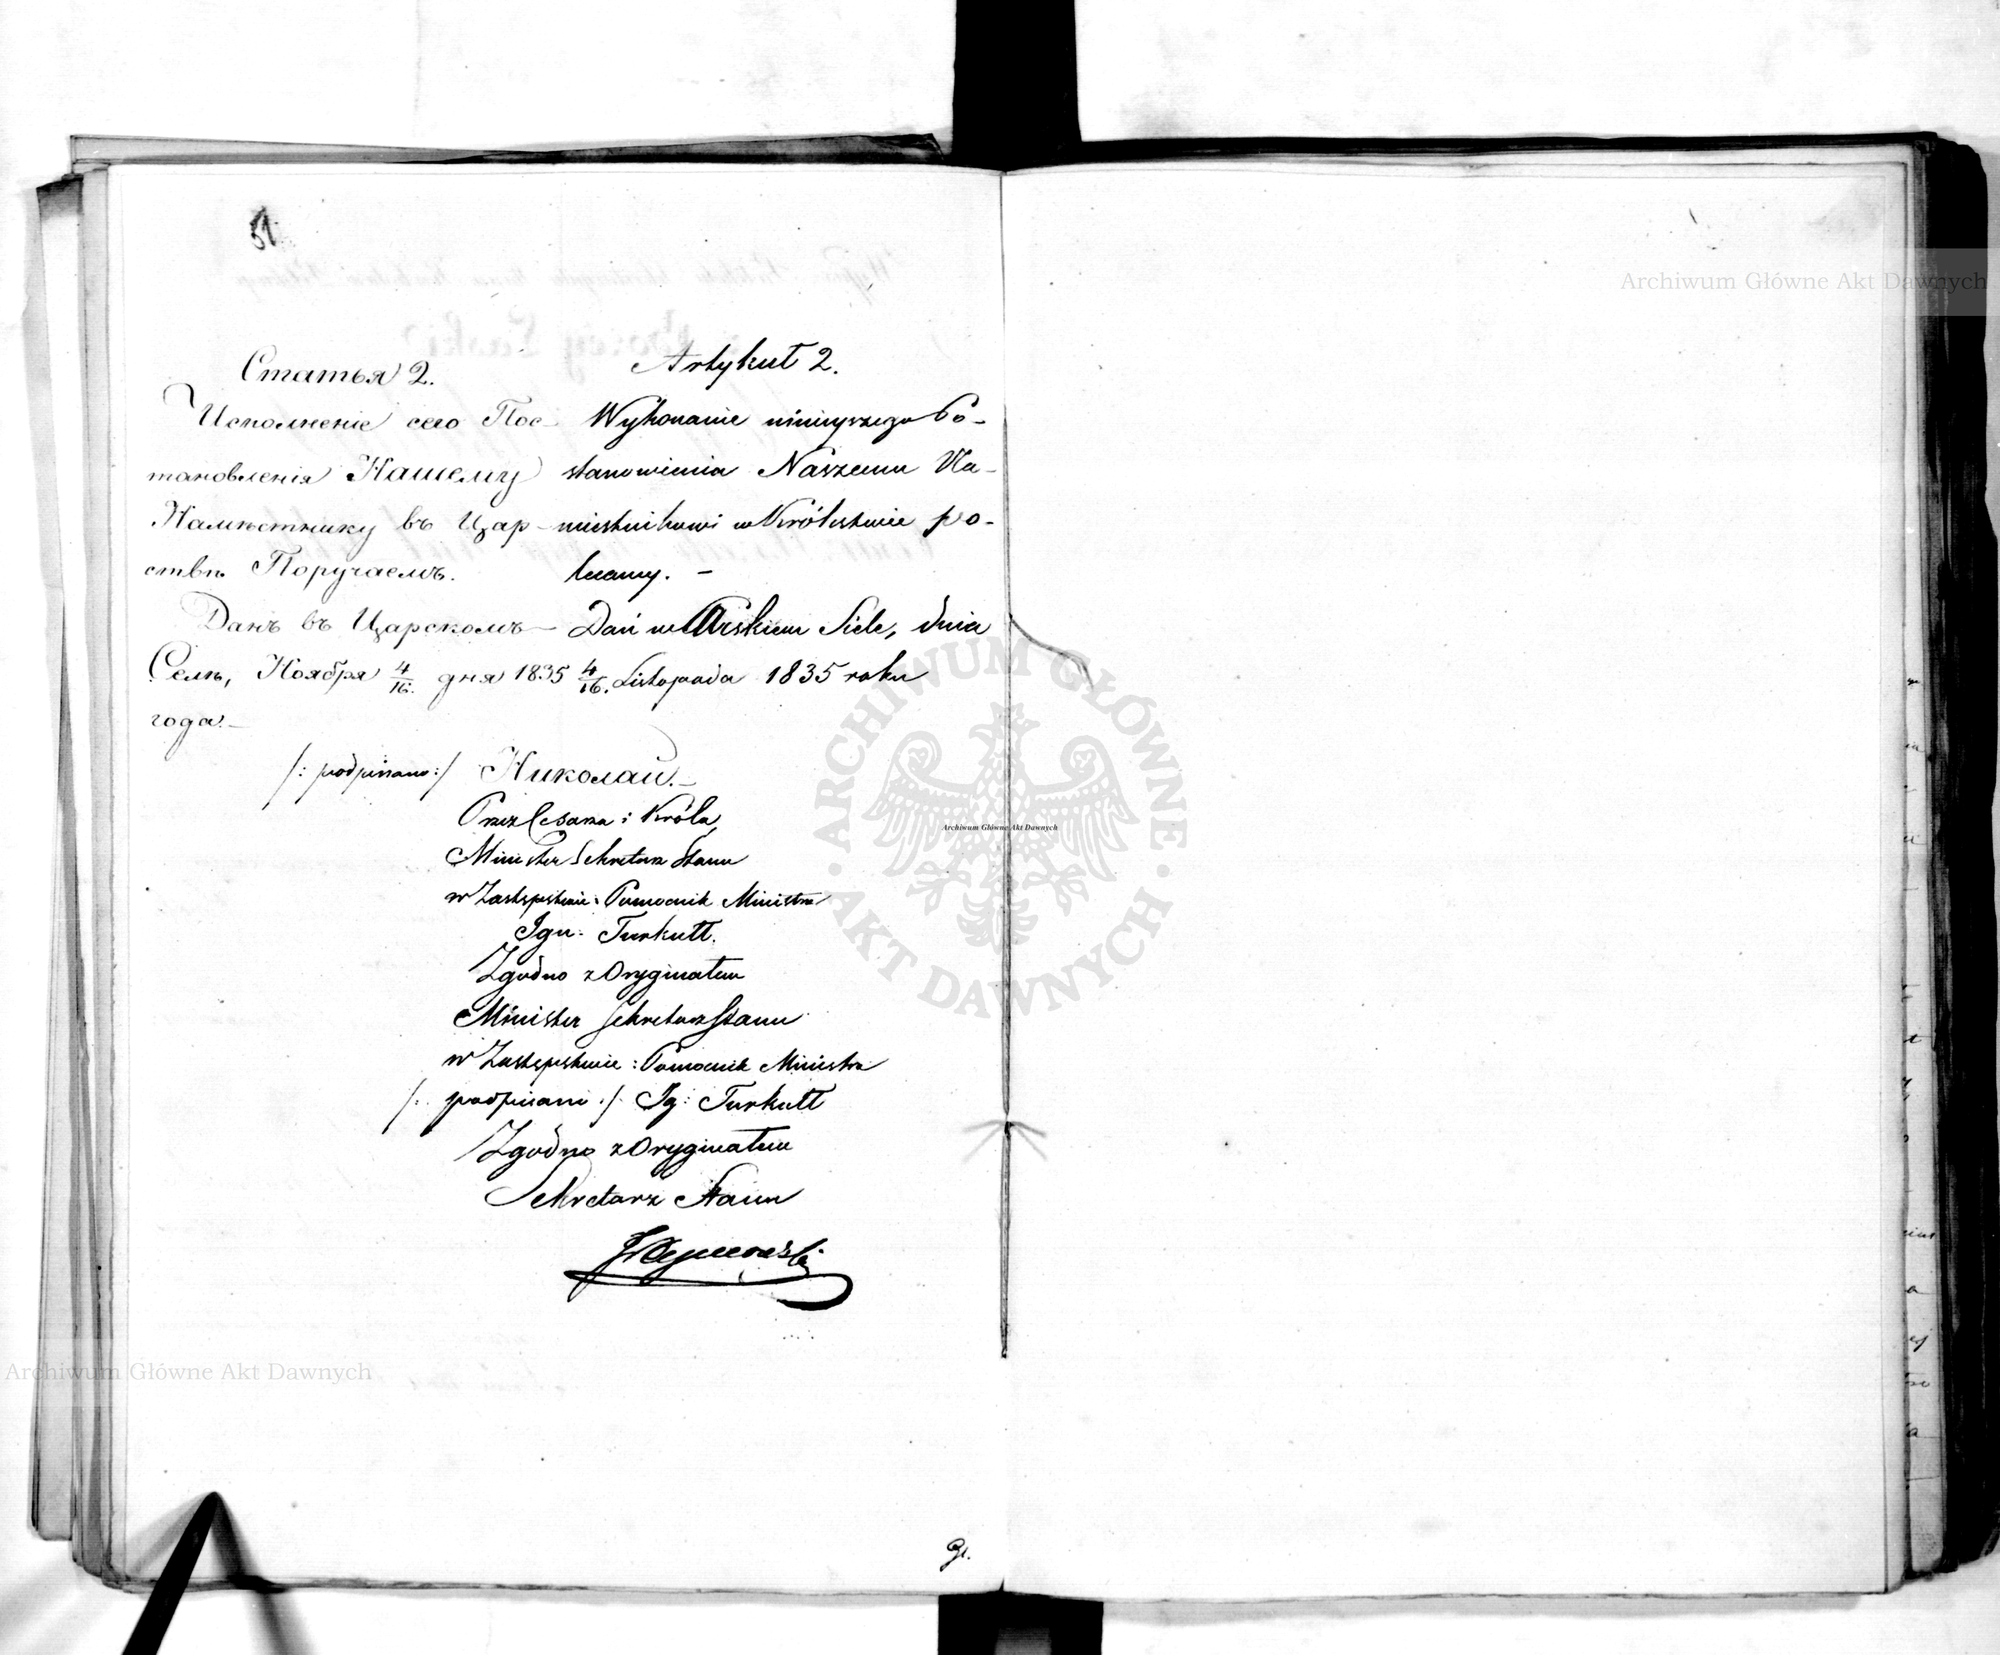 51
Статья 2.
Исполненіе сего Пос-
тановленія Нашему
Намѣстнику въ Цар-
ствѣ Поручаемъ.
Данъ въ Царскомъ
Селѣ, Ноября 4/16. дня 1835
года.
Artykuł 2.
Wykonanie ninieyszego Po-
stanowienia Naszemu Na-
miestnikowi w Królestwie po-
lecamy. -
Dań w Carskiem Siele, dnia
4/16. Listopada 1835 roku
/: podpisano :/ Николай.
Przez Cesarza i Króla,
Minister Sekretarz Stanu
w Zastępstwie: Pomocnik Ministra
Ign: Turkułł.
Zgodno z Oryginałem
Minister Sekretarz Stanu
w Zastępstwie: Pomocnik Ministra
/: podpisano :/ Ig: Turkułł
Zgodno z Oryginałem
Sekretarz Stanu
Archiwum Główne Akt Dawnych
ARCHIWUM GŁÓWNE · AKT DAWNYCH ·
Archiwum Główne Akt Dawnych
Archiwum Główne Akt Dawnych